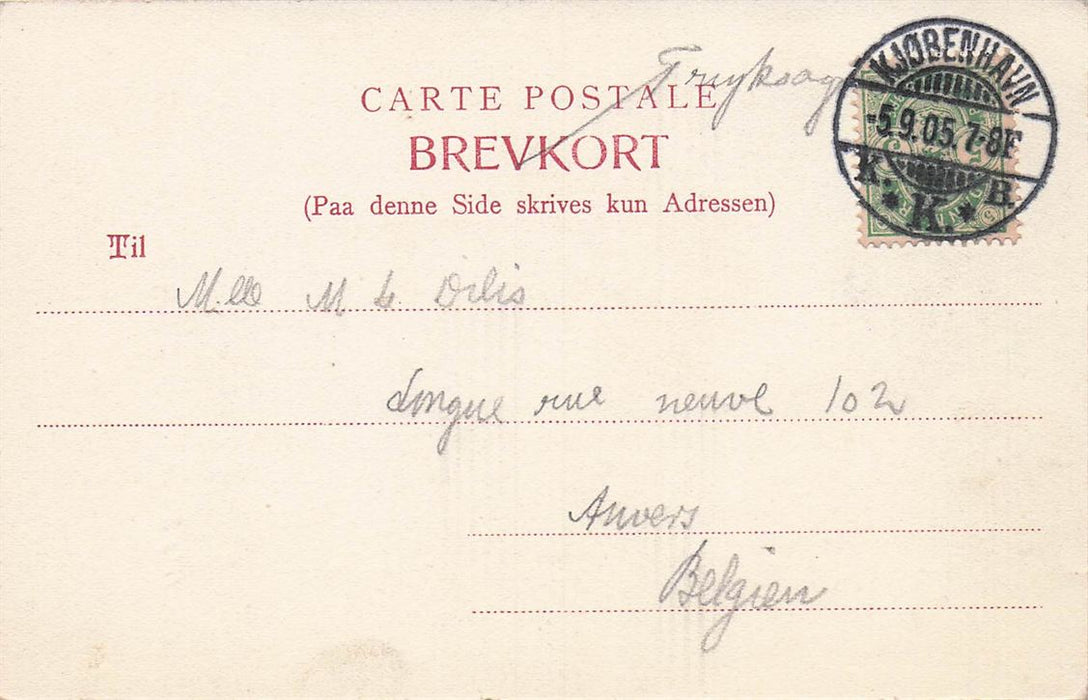 Tryksag
CARTE POSTALE
BREVKORT
(Paa denne Side skrives kun Adressen)
KJØBENHAVN.
-5.9.05.7-8F
K. K. B.
Til
Mlle M Dilis
Longue rue neuve 102
Anvers
Belgien